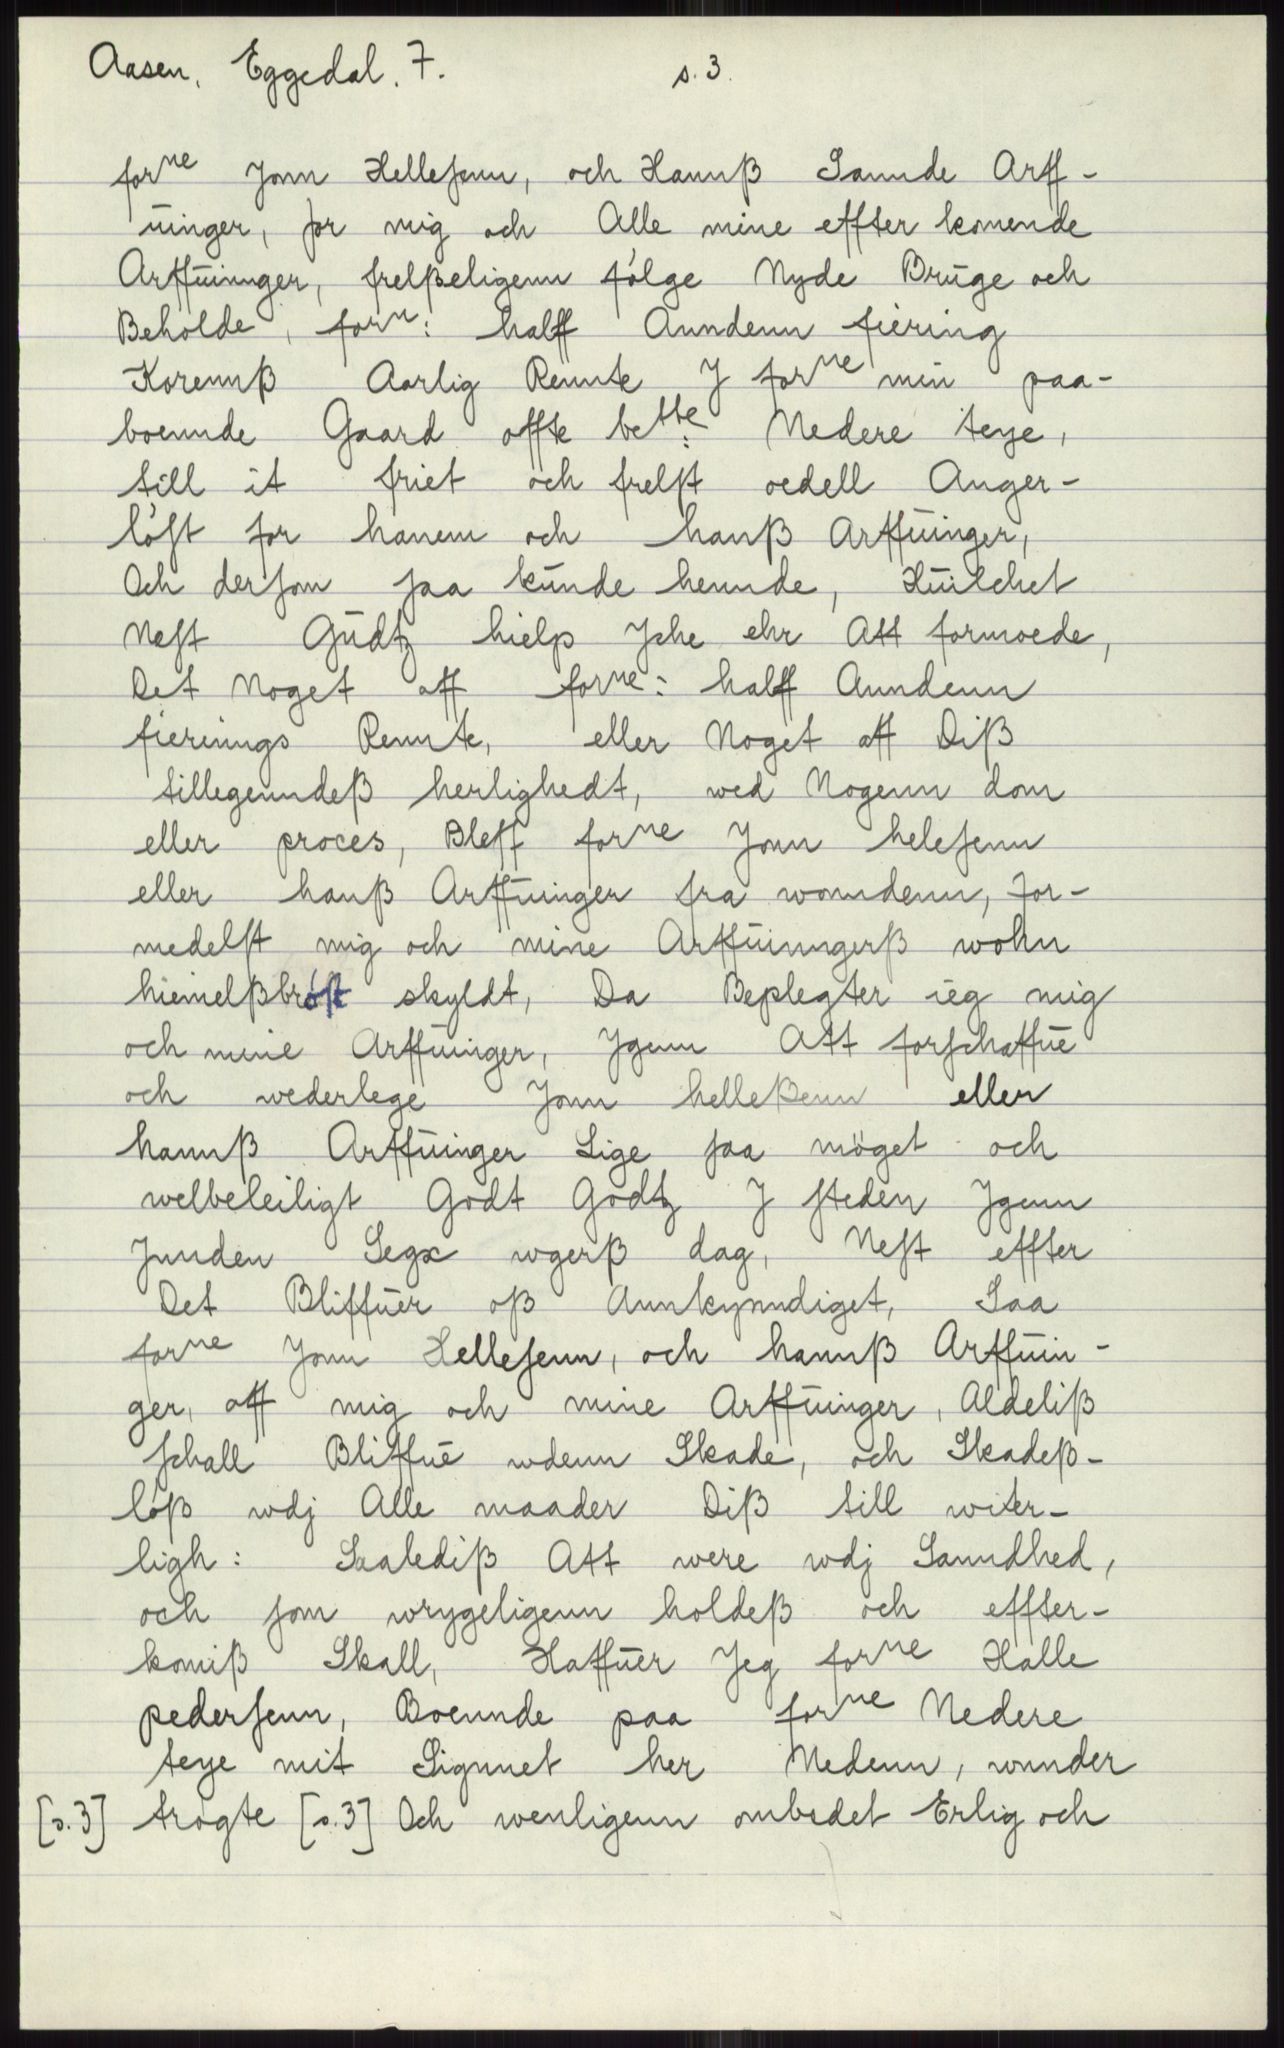 Aasen, Eggedal. 7. s. 3.
forne Jonn Hellesenn, och Hannß Sannde Arff-
üinger, for mig och Alle mine effter komende
Arffüinnger, frelßeligenn følge Nyde Brüge och
Beholde, forn: halff Anndenn fiering
Korennß Aarlig Rennte J forne min paa-
boennde Gaard offte bette: Nedere teye,
till it friet och frelst oedell Anger-
løst for hanem och hanß Arffüinger,
Och dersom saa künde hennde, Hüilchet
Nest Güdtz hielp Jche ehr Att formoede,
Det Noget aff forne: halff Anndenn
fierings Rennte, eller Noget aff Diß
tillegenndeß herlighedt, wed Nogenn dom
eller proces, Bleff forne Jonn helesenn
eller hanß Arffüinger fra wonndenn, for-
medelst mig och mine Arffüinngerß wohn
hiemelßbrøst skyldt, Da Beplegter ieg mig
och mine Arffüinger, Jgenn Att forschaffüe
och wederlege Jonn helleßenn eller
hannß Arffüinger Lige saa møget och
welbeleiligt Godt Godtz J steden Jgenn
Jnnden Segx wgerß dag, Nest effter
Det Bliffüer oß Annkynndiget, Saa
forne Jonn Hellesenn, och hannß Arffüin-
ger, aff mig och mine Arffüinger, Aldeliß
schall Bliffüe wdenn Skade, och Skadeß-
løß wdj Alle maader Diß till witer-
ligh: Saalediß Att were wdj Sanndhed,
och som wrygeligenn holdeß och effter-
komiß Skall, Haffüer Jeg forne Halle
pedersenn, Boennde paa forne Nedere
teye mit Signnet her Nedenn, wnnder
[s. 3] trøgte [s. 3] Och wenligenn ombedet Erlig och